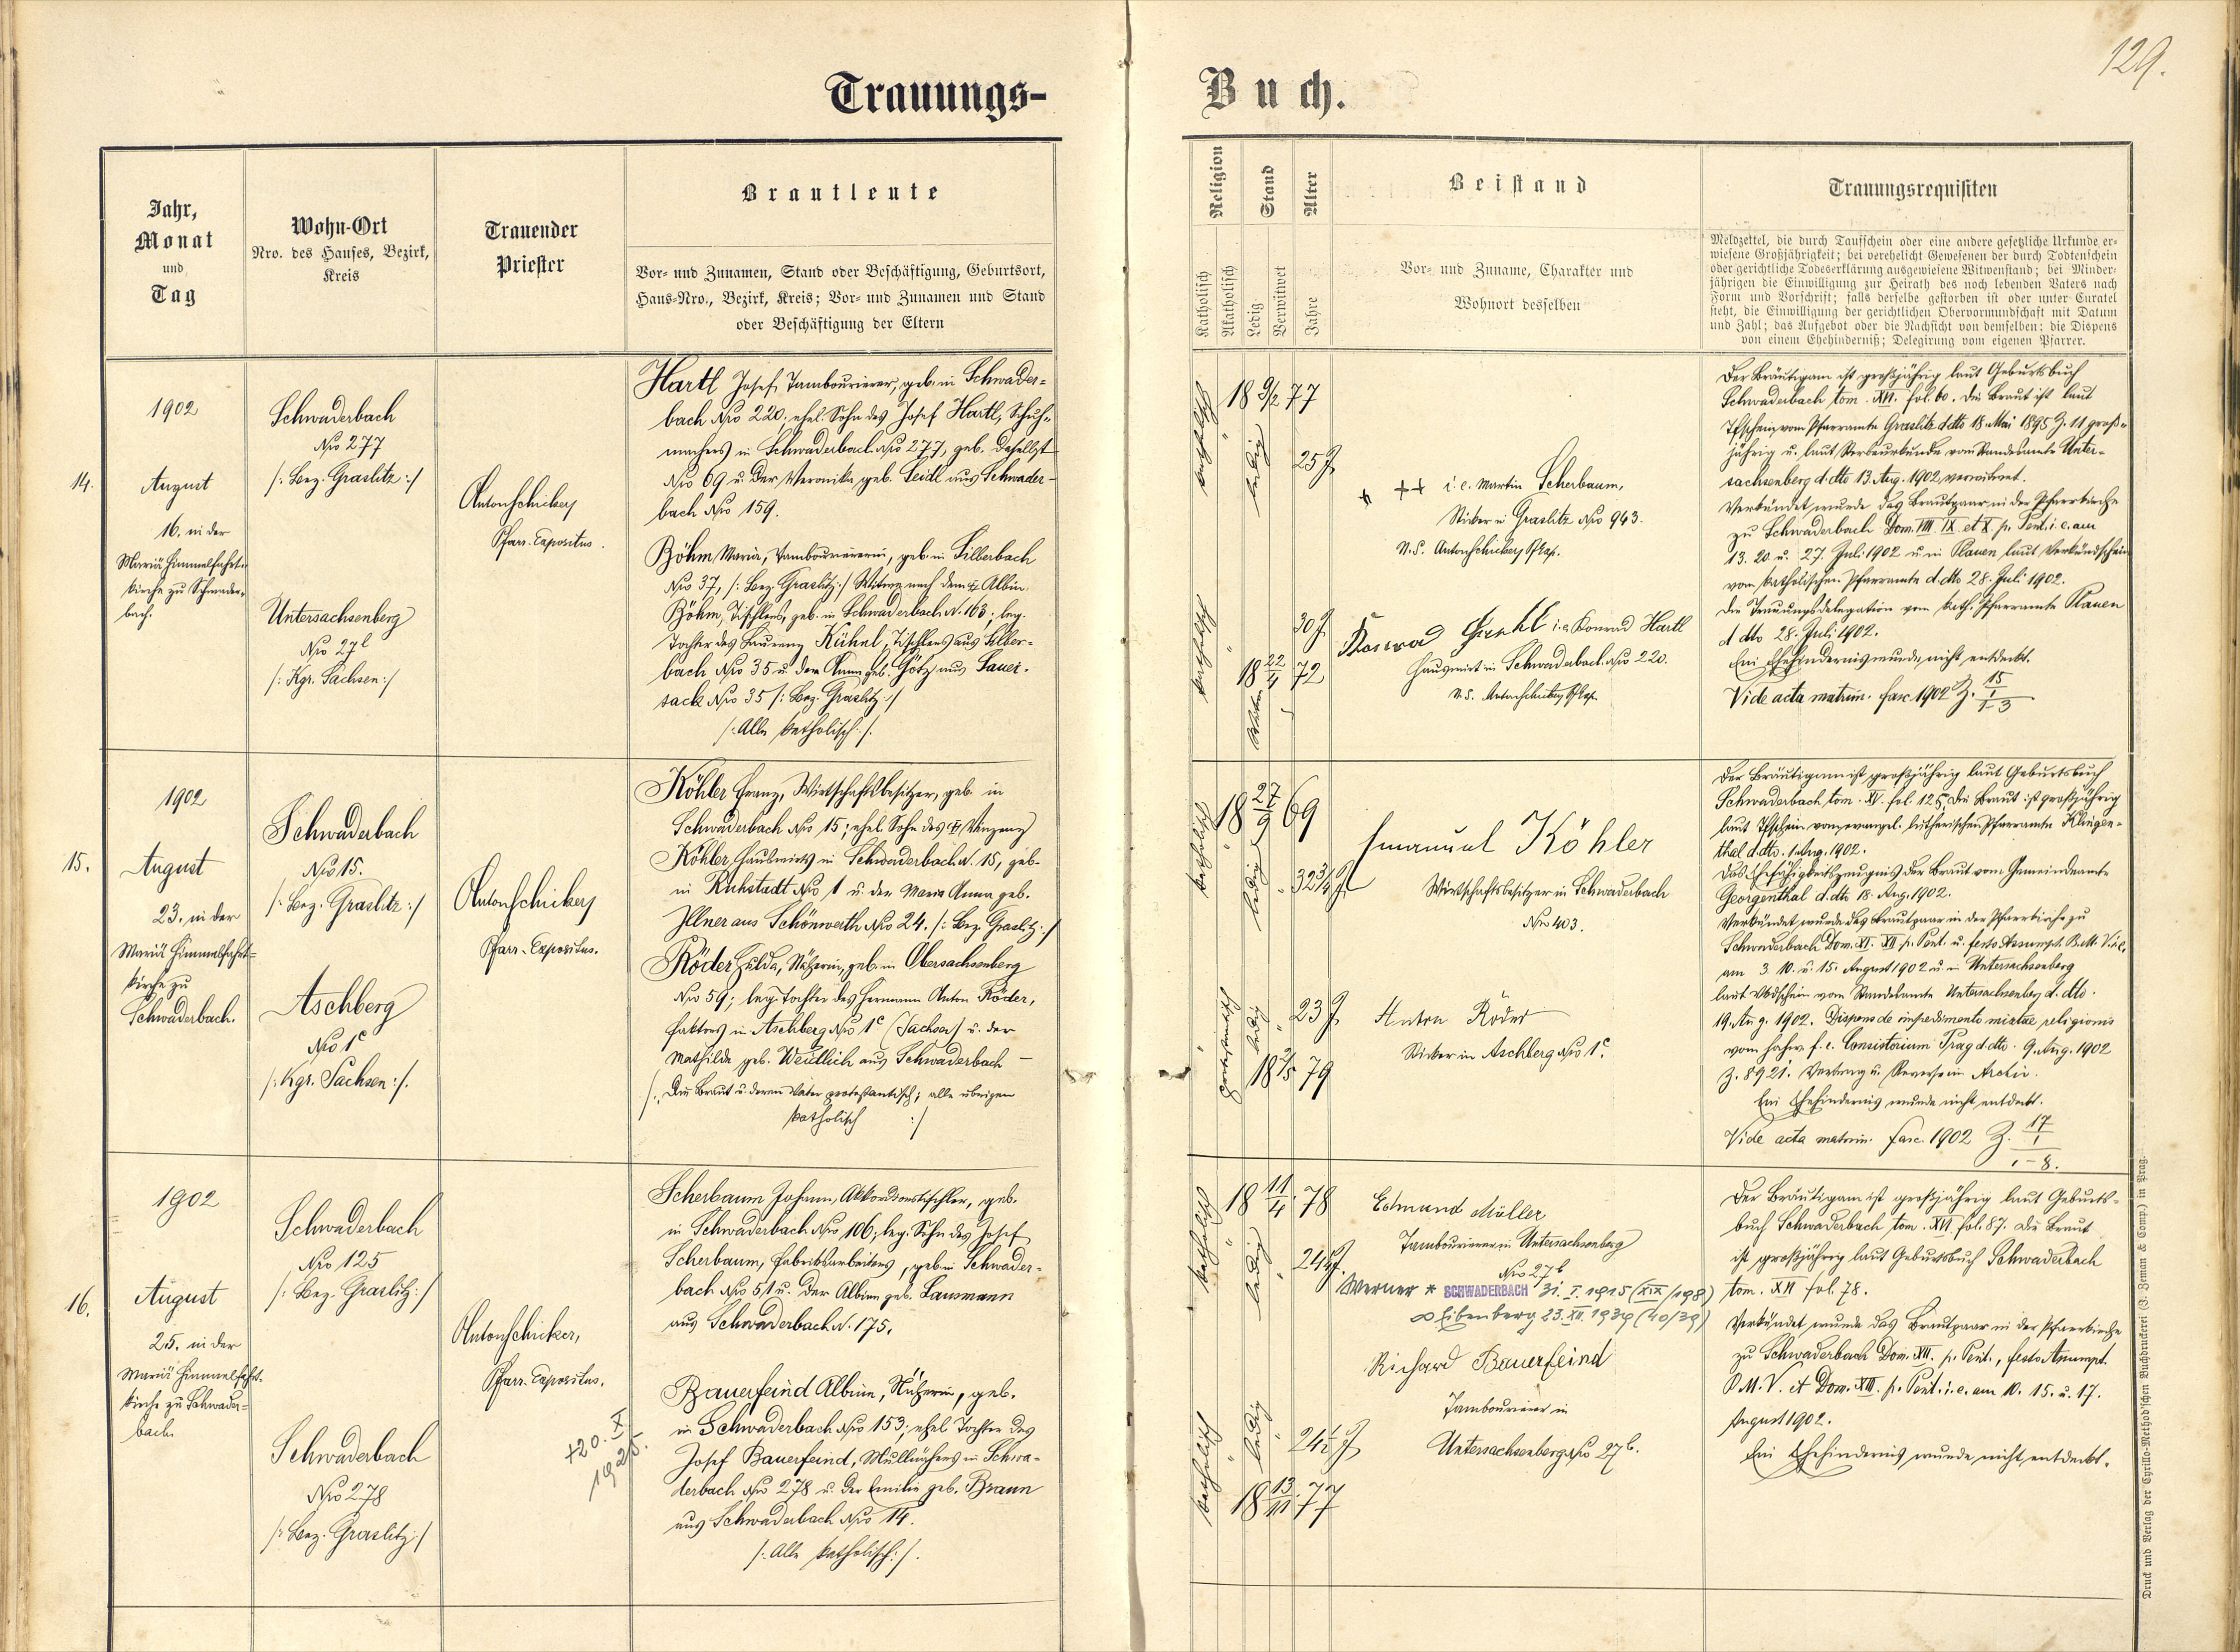 129.
Trauungs-
Buch.
Jahr,
Monat
und
Tag
Wohn-Ort
Nro. des Hauses, Bezirk,
Kreis
Trauender
Priester
Brautleute
Vor- und Zunamen, Stand oder Beschäftigung, Geburtsort,
Haus-Nro., Bezirk, Kreis; Vor- und Zunamen und Stand
oder Beschäftigung der Eltern
Religion
Katholisch
Akatholisch
Stand
Ledig
Verwitwet
Alter
Jahre
Beistand
Vor- und Zuname, Charakter und
Wohnort desselben
Trauungsrequisiten
Meldzettel, die durch Taufschein oder eine andere gesetzliche Urkunde er-
wiesene Großjährigkeit; bei verehelicht Gewesenen der durch Todtenschein
oder gerichtliche Todeserklärung ausgewiesene Witwenstand; bei Minder-
jährigen die Einwilligung zur Heirath des noch lebenden Vaters nach
Form und Vorschrift; falls derselbe gestorben ist oder unter Curatel
steht, die Einwilligung der gerichtlichen Obervormundschaft mit Datum
und Zahl; das Aufgebot oder die Nachsicht von demselben; die Dispens
von einem Ehehinderniß; Delegirung vom eigenen Pfarrer.
14.
1902
August
16. in der
Mariä Himmelfahrts-
kirche zu Schwader-
bach.
Schwaderbach
Nro 277
/: Bez. Graslitz :/
Untersachsenberg
Nro 27 l
/: Kgr. Sachsen :/
Anton Schicker
Pfarr-Expositus.
Hartl Josef, Tambourierer, geb. in Schwader-
bach Nro 220; ehel. Sohn des Josef Hartl, Schuh-
machers in Schwaderbach Nro 277, geb. daselbst
Nro 69 u. der Veronika geb. Leidl aus Schwader-
bach Nro 159.
Böhm Maria, Tambouriererin, geb. in Silberbach
Nro 37, /: Bez. Graslitz :/ Witwe nach dem † Albin
Böhm, Tischlers, geb. in Schwaderbach N. 163; leg.
Tochter des Laurenz Kühnl, Tischlers aus Silber-
bach Nro 35 u. der Anna geb. Götz aus Sauer-
sack Nro 35 /: Bez. Graslitz :/
/: Alle katholisch :/.
katholisch
ledig
18 9/2 77
25 J.
katholisch
Witwe
30 J.
18 22/4 72
+ ++ i. e. Martin Scherbaum,
Sticker in Graslitz Nro 943.
N.S. Anton Schicker Pf. Exp.
Konrad Hartl i. e. Konrad Hartl
Hauswirt in Schwaderbach Nro 220.
N.S. Anton Schicker Pf. Exp.
Der Bräutigam ist großjährig laut Geburtsbuch
Schwaderbach tom. XVI. fol. 60. Die Braut ist laut
Tfschein vom Pfarramte Graslitz d.dto 18. Mai 1895 Z. 11 groß-
jährig u. laut Sterbeurkunde vom Standesamte Unter-
sachsenberg d. dto 13. Aug. 1902 verwitwet.
Verkündet wurde das Brautpaar in der Pfarrkirche
zu Schwaderbach Dom. VIII IX et X p. Pent. i. e. am
13. 20. u. 27. Juli 1902 u. in Plauen laut Verkündschein
vom katholischen Pfarramte d. dto 28. Juli 1902.
Die Trauungsdelegation vom kath. Pfarramte Plauen
d dto 28. Juli 1902.
Ein Ehehindernis wurde nicht entdeckt.
Vide acta matrim. fasc. 1902 Z. 15/1-3
15.
1902
August
23. in der
Mariä Himmelfahrt-
kirche zu
Schwaderbach.
Schwaderbach
Nro 15.
/: Bez. Graslitz :/
Aschberg
Nro 1 c
/: Kgr. Sachsen :/.
Anton Schicker
Pfarr-Expositus.
Köhler Franz, Wirtschaftsbesitzer, geb. in
Schwaderbach Nro 15; ehel. Sohn des † Vinzenz
Köhler, Hauswirts in Schwaderbach N. 15, geb.
in Ruhstadt Nro 1 u. der Maria Anna geb.
Illner aus Schönwerth Nro 24. /: Bez. Graslitz :/
Röder Hulda, Näherin, geb. in Obersachsenberg
Nro 59; leg. Tochter des Hermann Anton Röder,
Faktors in Aschberg Nro 1 c (Sachsen) u. der
Mathilde geb. Weidlich aus Schwaderbach —
/: Die Braut u. deren Vater protestantisch; alle übrigen
katholisch :/
katholisch
ledig
18 27/9 69
32 3/4 J.
protestantisch
ledig
23 J.
18 2/5 79
Emanuel Köhler
Wirtschaftsbesitzer in Schwaderbach
Nro 403.
Anton Röder
Sticker in Aschberg Nro 1 c.
Der Bräutigam ist großjährig laut Geburtsbuch
Schwaderbach tom. XV. fol. 125. Die Braut ist großjährig
laut Tfschein vom evangel. lutherischen Pfarramte Klingen-
thal d. dto. 1. Aug. 1902.
Das Ehefähigkeitszeugnis der Braut vom Gemeindeamte
Georgenthal d. dto 18. Aug. 1902.
Verkündet wurde das Brautpaar in der Pfarrkirche zu
Schwaderbach Dom. XI. XII p. Pent. u. festo Assumpt. B. M. V. i. e.
am 3. 10. u. 15. August 1902 u. in Untersachsenberg
laut Vkdschein vom Standesamte Untersachsenberg d. dto.
19. Aug. 1902. Dispens de impedimento mixtae religionis
vom hochw. f. e. Consistorium Prag d. dto. 9. Aug. 1902
Z. 8921. Vertrag u. Reverse im Archiv.
Ein Ehehindernis wurde nicht entdeckt.
Vide acta matrim. fasc. 1902 Z. 17/1-8.
16.
1902
August
25. in der
Mariä Himmelfahrt-
kirche zu Schwader-
bach.
Schwaderbach
Nro 125
/: Bez. Graslitz :/
Schwaderbach
Nro 278
/: Bez. Graslitz :/
Anton Schicker,
Pfarr-Expositus.
+20. X.
1925.
Scherbaum Johann, Akkordionstischler, geb.
in Schwaderbach Nro 106; leg. Sohn des Josef
Scherbaum, Fabriksarbeiters, geb. in Schwader-
bach Nro 51 u. der Albine geb. Lausmann
aus Schwaderbach N. 175.
Bauerfeind Albine, Näherin, geb.
in Schwaderbach Nro 153; ehel. Tochter des
Josef Bauerfeind, Mullnähers in Schwa-
derbach Nro 278 u. der Emilie geb. Braun
aus Schwaderbach Nro 14.
/: Alle katholisch :/.
katholisch
ledig
18 11/4 78
24 J.
katholisch
ledig
24 1/2 J.
18 13/11 77
Edmund Müller
Tambourierer in Untersachsenberg
Nro 27 b
Werner * SCHWADERBACH 31. I. 1915 (XIX/198)
∞ Eibenberg 23. XII. 1939 (40/39)
Richard Bauerfeind
Tambourierer in
Untersachsenberg Nro 27 b.
Der Bräutigam ist großjährig laut Geburts-
buch Schwaderbach tom. XVI fol. 87. Die Braut
ist großjährig laut Geburtsbuch Schwaderbach
tom. XVI fol. 78.
Verkündet wurde das Brautpaar in der Pfarrkirche
zu Schwaderbach Dom. XII. p. Pent., festo Assumpt.
B. M. V. et Dom. XIII. p. Pent. i. e. am 10. 15. u. 17.
August 1902.
Ein Ehehindernis wurde nicht entdeckt.
Druck und Verlag der Cyrillo-Method'schen Buchdruckerei (J. Zeman & Comp.) in Prag.